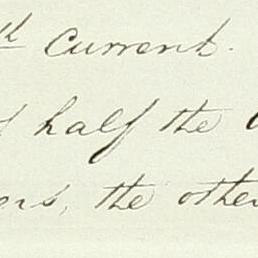 th Current.
half the
ers, the other